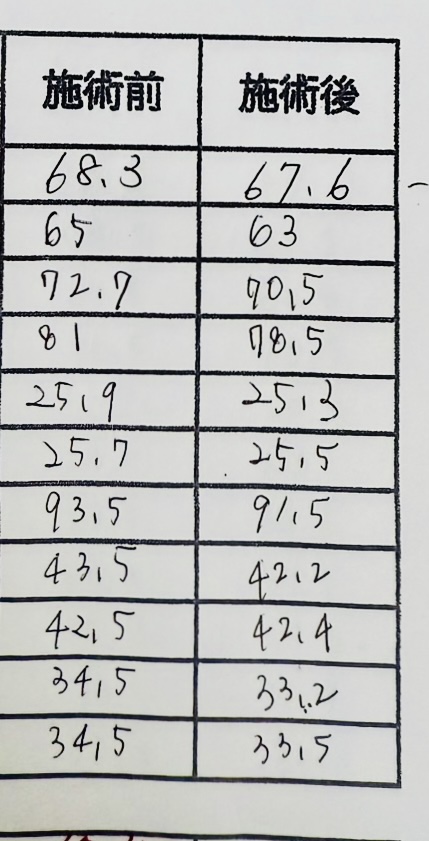 施術前 施術後
68.3 67.6
65 63
72.7 70.5
81 78.5
25.9 25.3
25.7 25.5
93.5 91.5
43.5 42.2
42.5 42.4
34.5 33.2
34.5 33.5